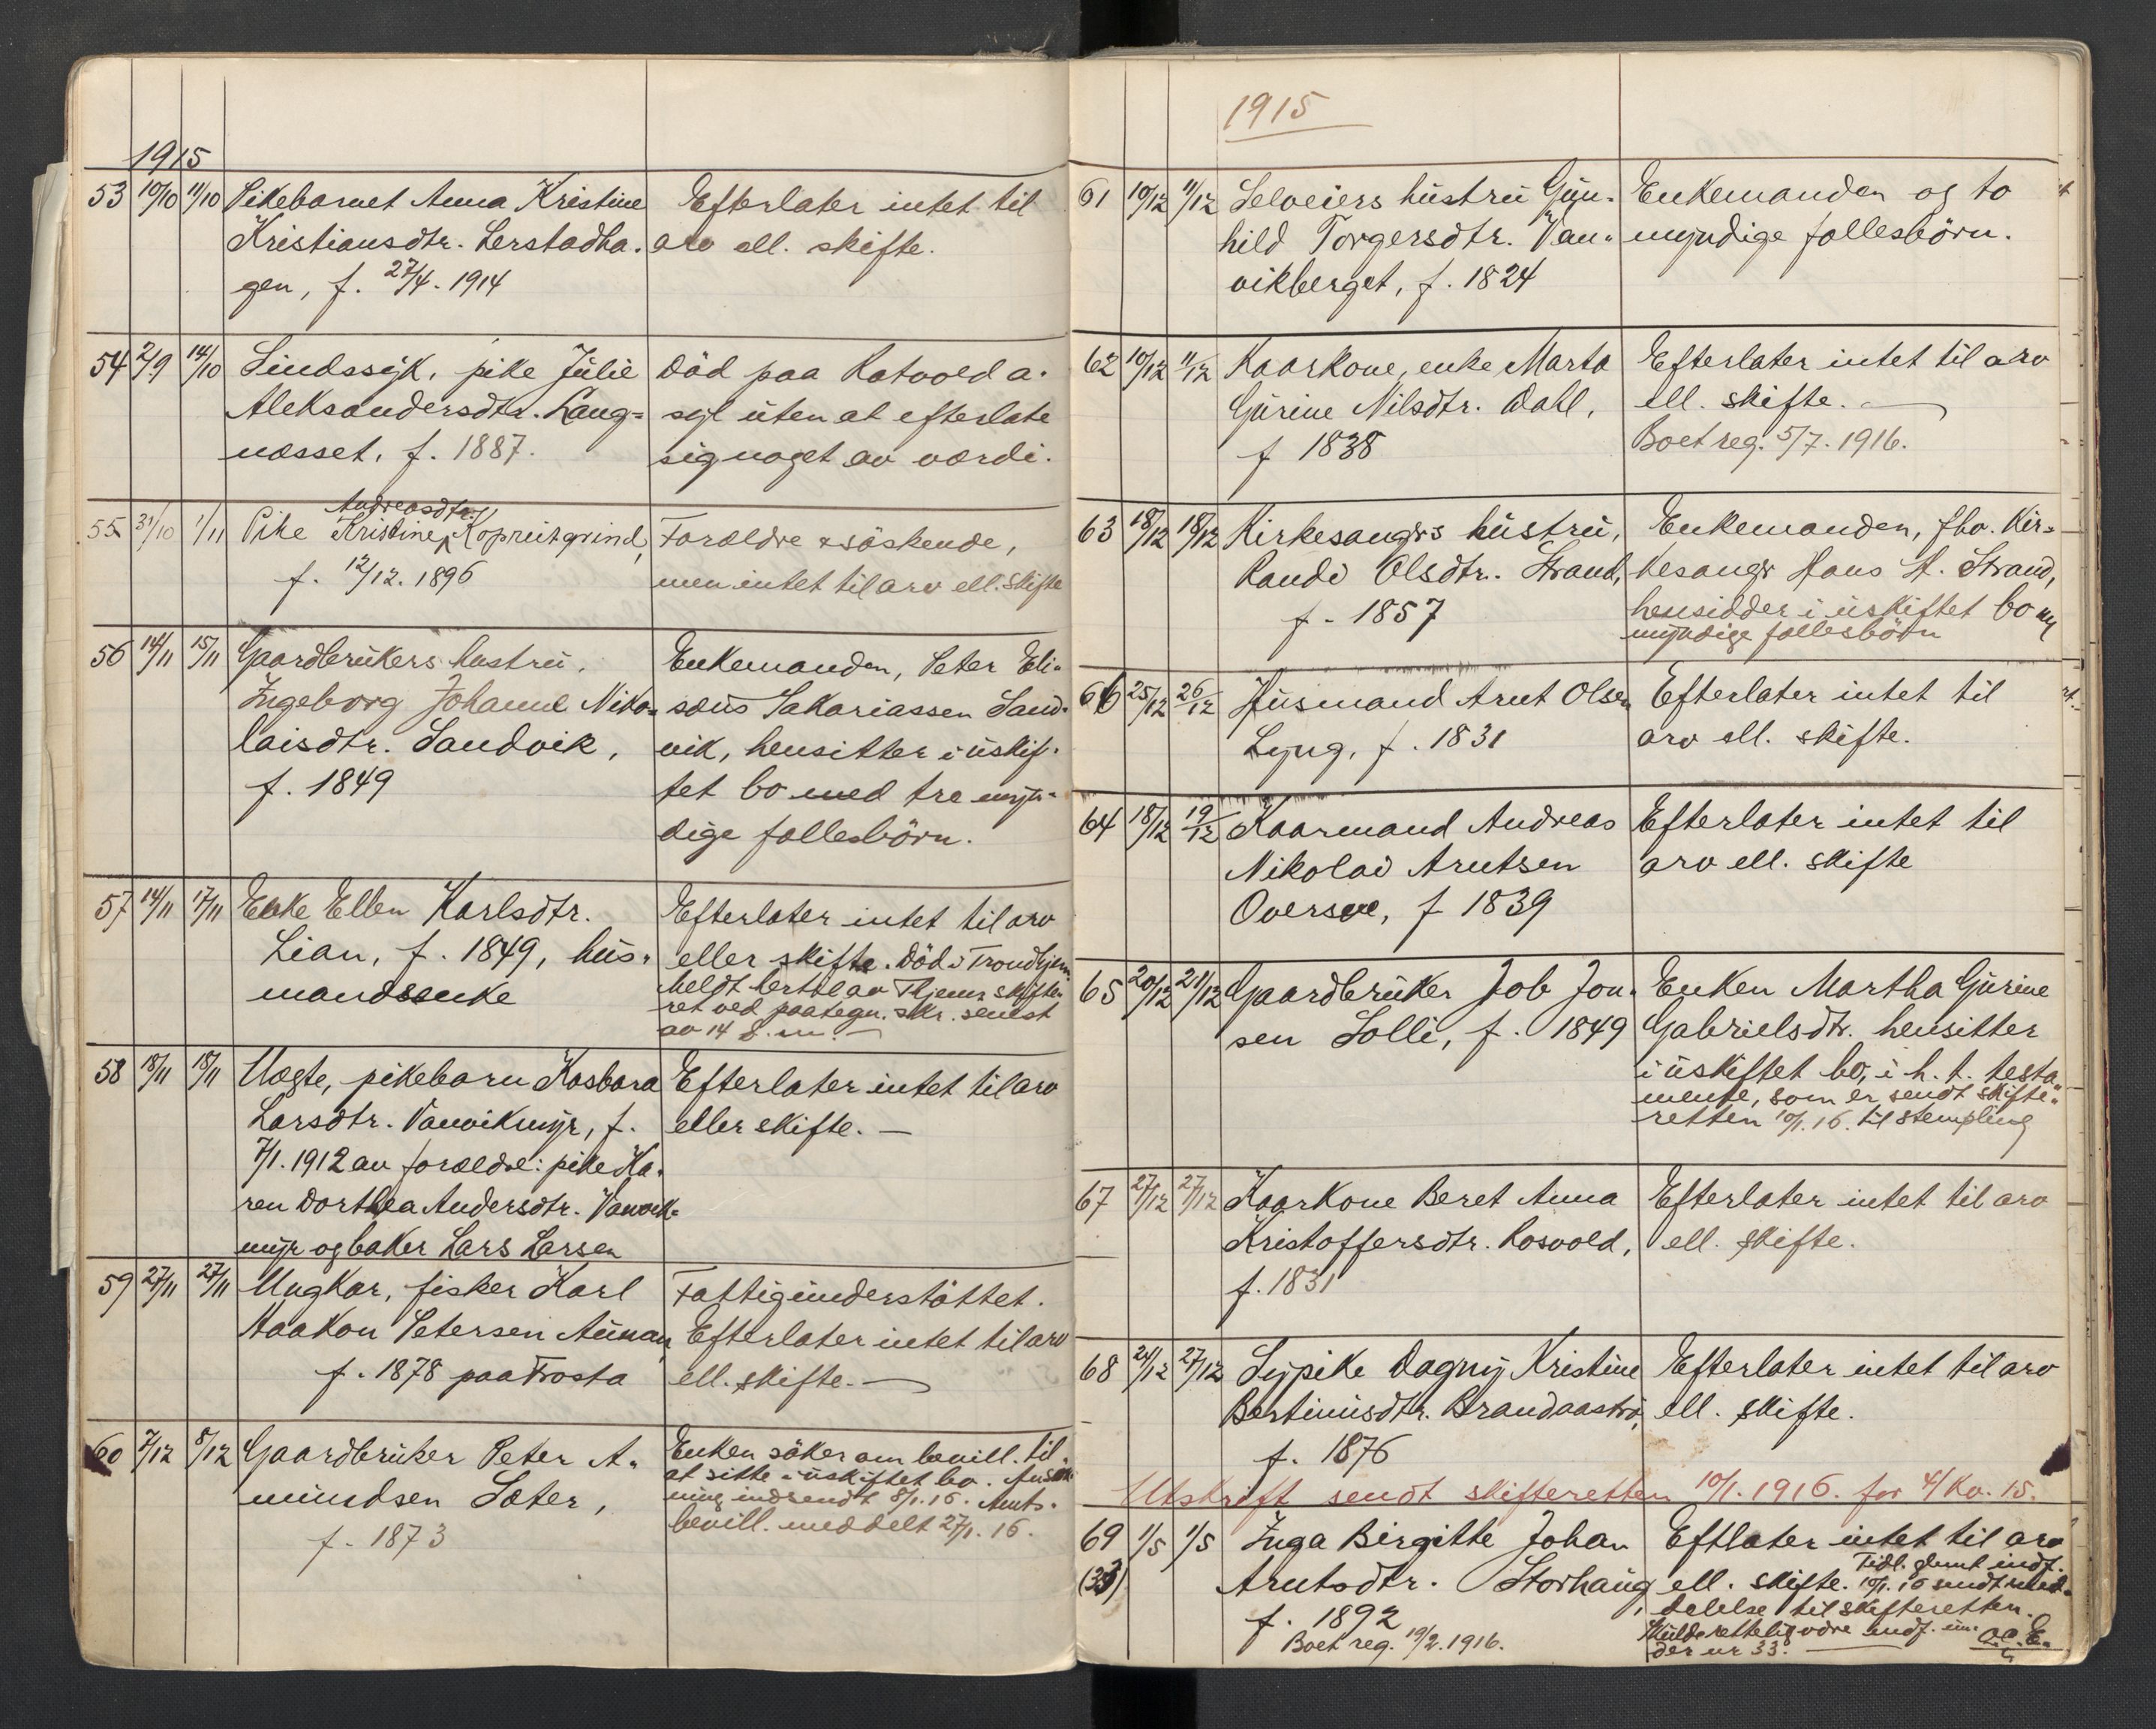 1915
53 10/10 11/10 Pikebarnet Anna Kristine Efterlater intet til
Kristiansdtr. Lerstadha- arv ell. skifte.
gen, f. 27/4. 1914
54 2/9 14/10 Sindssyk, pike Julie Död paa Rotvold a-
Aleksandersdtr. Lang= syl uten at efterlate
næsset, f. 1887. sig noget av værdi.
Andreasdtr.
55 31/10 1/11 Pike Kristine Kopreitgrind, Forældre & söskende,
f. 12/12. 1896 men intet til arv ell. skifte
56 14/11 15/11 Gaardbrukers hustru, Enkemanden, Peter Eli-
Ingeborg Johanne Niko= sæus Sakariassen Sand-
laisdtr. Sandvik, vik, hensitter i uskif-
f. 1849 tet bo med tre myn-
dige fællesbörn.
57 14/11 17/11 Enke Ellen Karlsdtr. Efterlater intet til arv
Lian, f. 1849, hus- eller skifte. Död i Trondhjem
mandsenke meldt hertil av Thjems skifte-
ret ved paategn. skr. senest
av 14 d. m.
58 18/11 18/11 Uægte, pikebarn Kasbara Efterlater intet til arv
Larsdtr. Vanvikmyr, f. eller skifte. —
7/1. 1912 av forældre: pike Ka-
ren Dorthea Andersdtr. Vanvik-
myr og baker Lars Larsen
59 27/11 27/11 Ungkar, fisker Karl Fattigunderstöttet.
Haakon Petersen Aunan, Efterlater intet til arv
f. 1878 paa Frosta ell. skifte. —
60 7/12 8/12 Gaardbruker Peter A- Enken söker om bevill. til
mundsen Sæter, at sitte i uskiftet bo. Ansök-
ning indsendt 8/1. 16. Amts-
f. 1873 bevill. meddelt 27/1. 16.
1915
61 10/12 11/12 Selveiers hustru Gun- Enkemanden og to
hild Torgersdtr. Van- myndige fællesbörn.
vikberget, f. 1824
62 10/12 11/12 Kaarkone, enke Marta Efterlater intet til arv
Gurine Nilsdtr. Dahl, ell. skifte. —
f 1838 Boet reg. 5/7. 1916.
63 18/12 18/12 Kirkesangers hustru, Enkemanden, fhv. Kir-
Randi Olsdtr. Strand, kesanger Hans H. Strand,
f. 1857 hensidder i uskiftet bo m
myndige fællesbörn
66 25/12 26/12 Husmand Arnt Olsen Efterlater intet til
Lyng, f. 1831 arv ell. skifte.
64 18/12 19/12 Kaarmand Andreas Efterlater intet til
Nikolai Arntsen arv ell. skifte
Oversve, f 1839
65 20/12 21/12 Gaardbruker Job Jon- Enken Martha Gurine
sen Solli, f. 1849 Gabrielsdtr. hensitter
i uskiftet bo, i h. t. testa-
mente, som er sendt skifte-
retten 10/1. 16. til stempling
67 27/12 27/12 Kaarkone Beret Anna Efterlater intet til arv
Kristoffersdtr. Rosvold, ell. skifte.
f. 1831
68 24/12 27/12 Sypike Dagny Kristine Efterlater intet til arv
Bertinusdtr. Brandaaströ, ell. skifte.
f. 1876
Utskrift sendt skifteretten 10/1. 1916. for 4/Kv. 15.
69 1/5 1/5 Inga Birgitte Johan Eftlater intet til arv
(33) Arntsdtr. Storhaug, ell. skifte. Tidl. glemt indf.
10/1. 16 sendt med-
f. 1892 delelse til skifteretten.
Boet reg. 19/2. 1916. Skulde rettelig være indf. un-
der nr 33. — O. C. E.